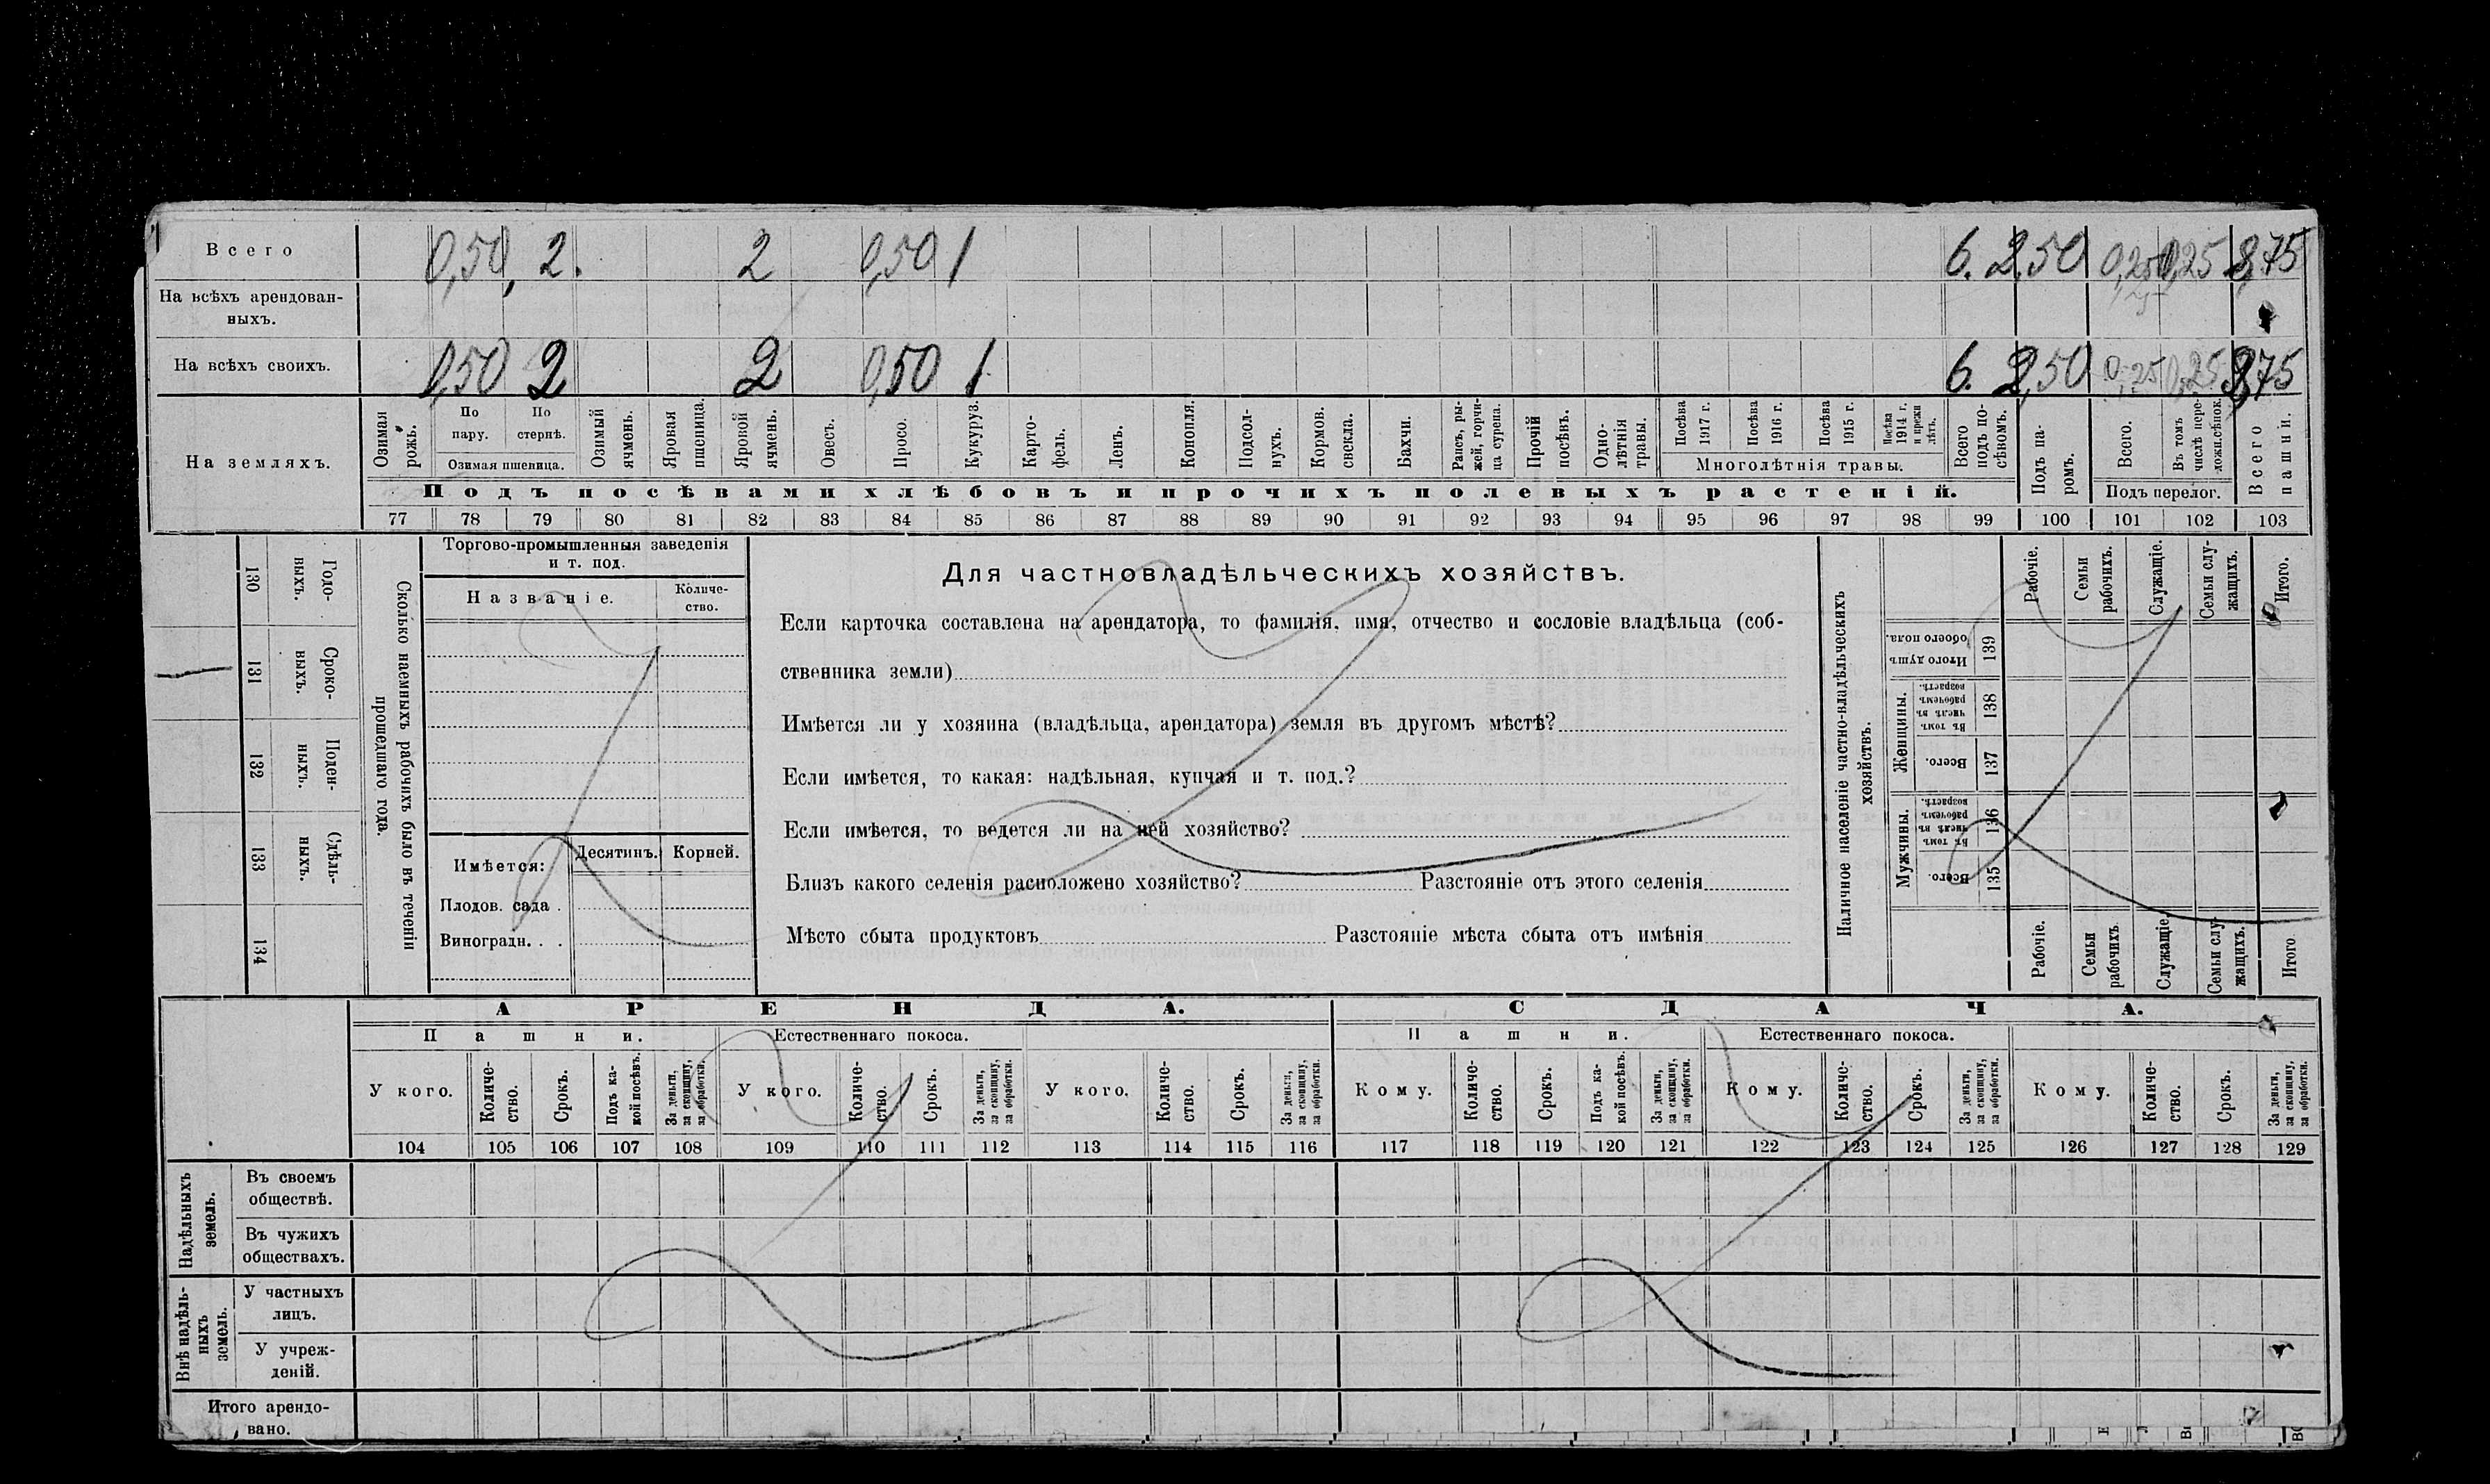 Всего 0,50 2. 2 0,50 1 6. 2,50 0,25 0,25 8,75
На всѣхъ арендован-
ныхъ.
На всѣхъ своихъ. 0,50 2 2 0,50 1 6. 2,50 0,25 0,25 8,75
На земляхъ.
Озимая рожь.
По пару.
По стернѣ.
Озимая пшеница.
Озимый ячмень.
Яровая пшеница.
Яровой ячмень.
Овесъ.
Просо.
Кукуруз.
Карто-
фель.
Ленъ.
Конопля.
Подсол-
нухъ.
Кормов. свекла.
Бахчи.
Рапсъ, ры-
жей, горчи-
ца сурепа.
Прочій посѣвъ.
Одно-
лѣтнія травы.
Посѣва 1917 г.
Посѣва 1916 г.
Посѣва 1915 г.
Посѣва 1914 г. и прежн лѣтъ.
Многолѣтнія травы.
Всего подъ по-
сѣвомъ.
Подъ па-
ромъ.
Всего.
Въ томъ числѣ пере-
ложн.сѣнок.
Подъ перелог.
Всего пашни.
Подъ посѣвами хлѣбовъ и прочихъ полевыхъ растеній.
77 78 79 80 81 82 83 84 85 86 87 88 89 90 91 92 93 94 95 96 97 98 99 100 101 102 103
Сколько наемныхъ рабочихъ было въ теченіи
прошедшаго года.
Годо-
выхъ.
130
Сроко-
выхъ.
131
Поден-
ныхъ.
132
Сдѣль-
ныхъ.
133
134
Торгово-промышленныя заведенія
и т. под.
Названіе.
Количе-
ство.
Имѣется: Десятинъ. Корней.
Плодов. сада .
Виноградн. . .
Для частновладѣльческихъ хозяйствъ.
Если карточка составлена на арендатора, то фамилія, имя, отчество и сословіе владѣльца (соб-
ственника земли)
Имѣется ли у хозяина (владѣльца, арендатора) земля въ другомъ мѣстѣ?
Если имѣется, то какая: надѣльная, купчая и т. под.?
Если имѣется, то ведется ли на ней хозяйство?
Близъ какого селенія расположено хозяйство? Разстояніе отъ этого селенія
Мѣсто сбыта продуктовъ Разстояніе мѣста сбыта отъ имѣнія
Наличное населеніе частно-владѣльческихъ
хозяйствъ.
Рабочіе.
Семьи рабочихъ.
Служащіе.
Семьи слу-
жащихъ.
Итого.
Итого душъ обоего пола.
139
Женщины.
Въ томъ числѣ въ рабочемъ возрастѣ.
138
Всего.
137
Мужчины.
Въ томъ числѣ въ рабочемъ возрастѣ.
136
Всего.
135
Рабочіе.
Семьи рабочихъ.
Служащіе
Семьи слу-
жащихъ.
Итого
АРЕНДА. СДАЧА.
Пашни. Естественнаго покоса. Пашни. Естественнаго покоса.
У кого.
Количе-
ство.
Срокъ.
Подъ ка-
кой посѣвъ.
За деньги, за скопщину, за обработки.
У кого.
Количе-
ство.
Срокъ.
За деньги, за скопщину, за обработки.
У кого.
Количе-
ство.
Срокъ.
За деньги, за скопщину, за обработки.
Кому.
Количе-
ство.
Срокъ.
Подъ ка-
кой посѣвъ.
За деньги, за скопщину, за обработки.
Кому.
Количе-
ство.
Срокъ.
За деньги, за скопщину, за обработки.
Кому.
Количе-
ство.
Срокъ.
За деньги, за скопщину, за обработки.
104 105 106 107 108 109 110 111 112 113 114 115 116 117 118 119 120 121 122 123 124 125 126 127 128 129
Надѣльныхъ
земель.
Въ своемъ
обществѣ.
Въ чужихъ
обществахъ.
Внѣ надѣль-
ныхъ
земель.
У частныхъ
лицъ.
У учреж-
деній.
Итого арендо-
вано.